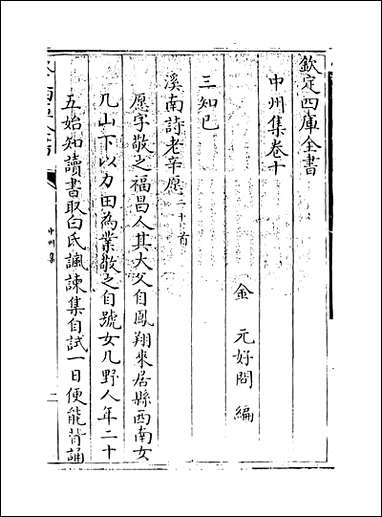 欽定四庫全書
中州集卷十
金 元好問 編
三知己
溪南詩老辛愿二十首
愿字敬之福昌人其大父自鳳翔來居縣西南女
几山下以力田為業敬之自號女几野人年二十
五始知讀書取白氏諷諫集自試一日便能背誦
中州集